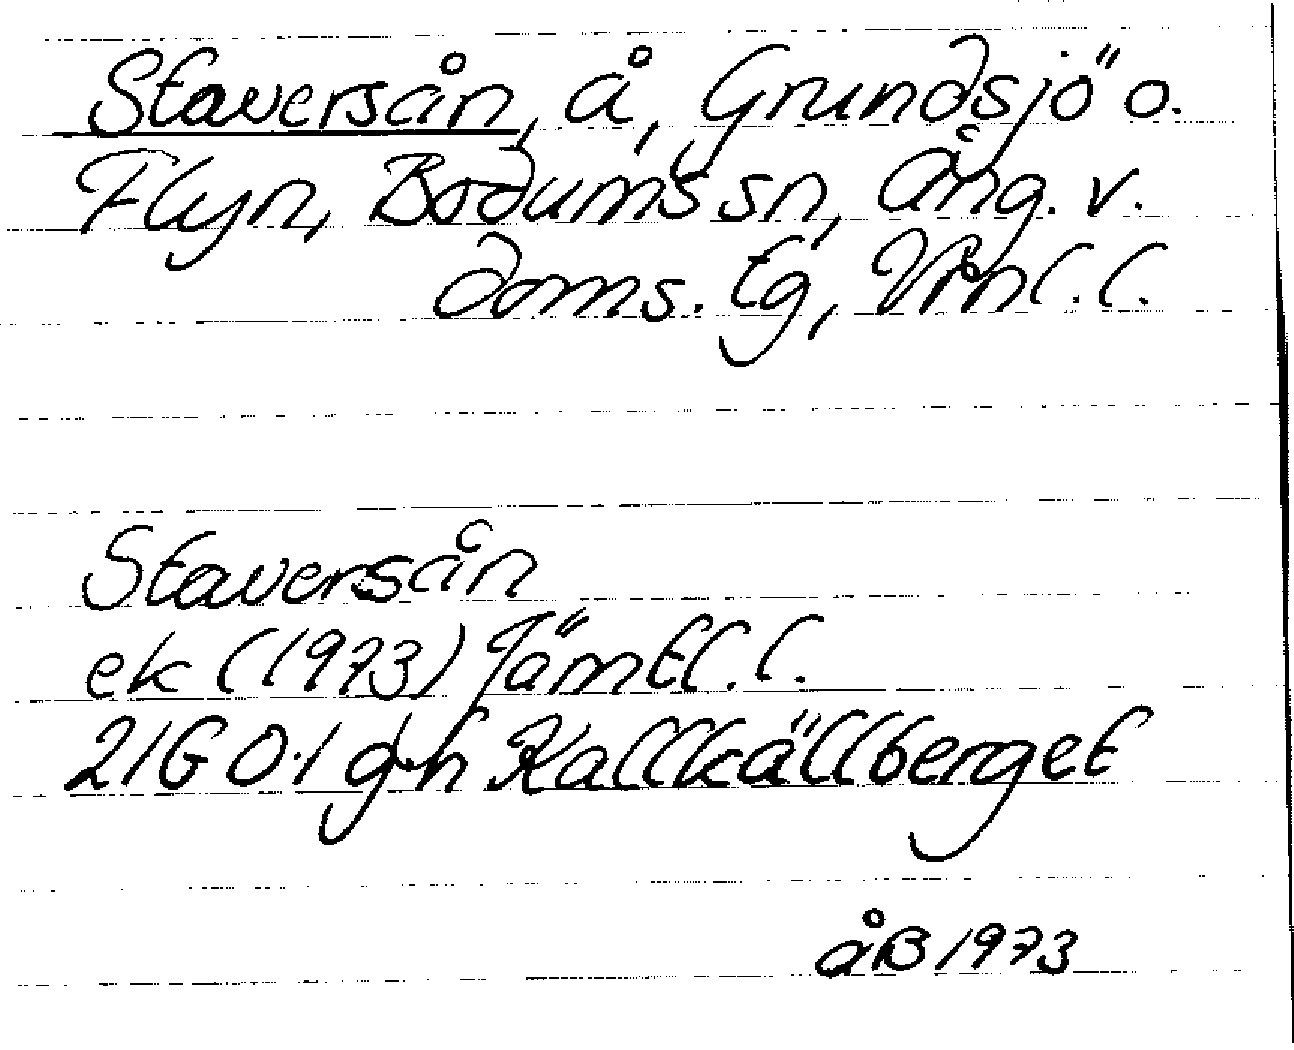 Staversån, å, Grundsjö o.
Flyn, Bodums sn, Ång. v.
doms. tg, Vrnl. l.
Staversån
ek (1973) Jämtl. l.
21G 0-1 g-h Kallkällberget
åB 1973